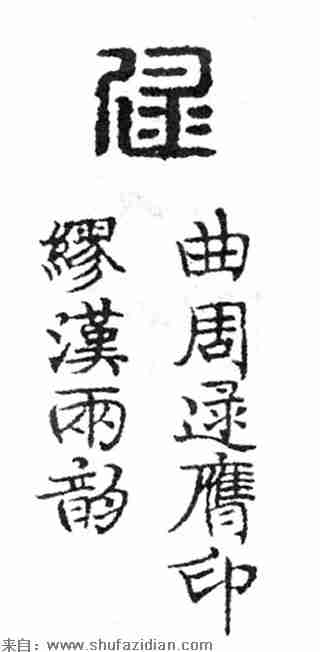 曲周逯膺印
繆漢兩韵
来自：www.shufazidian.com